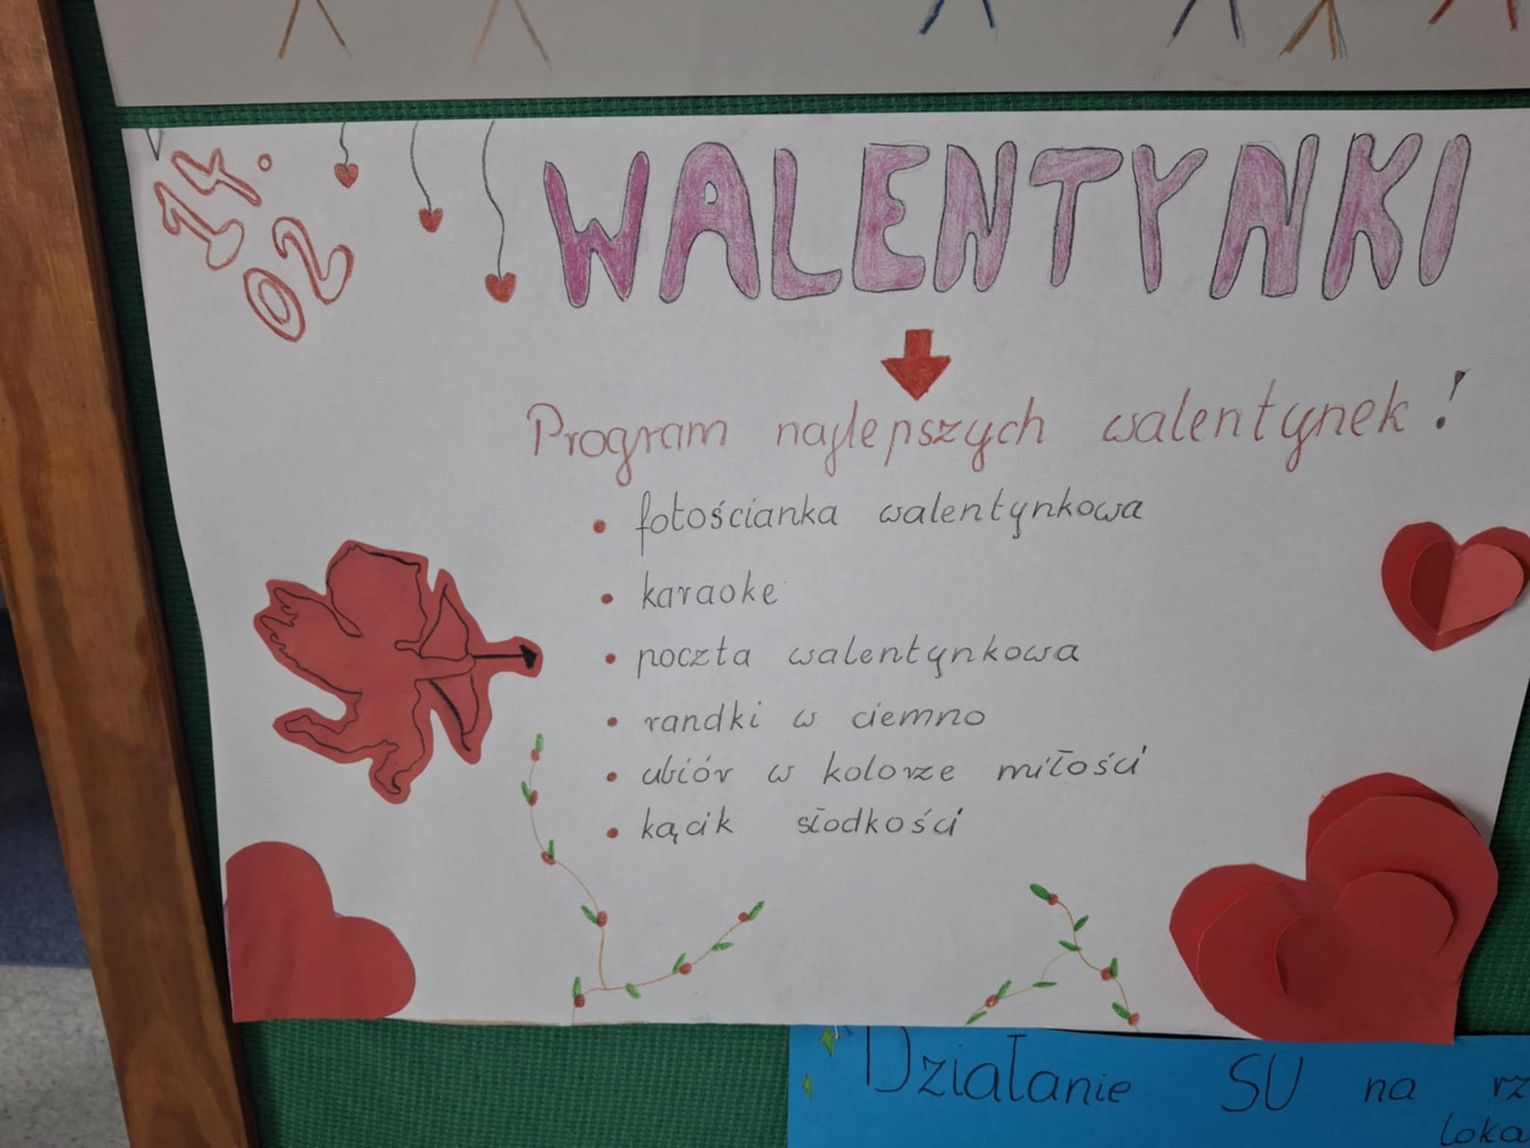 14.
02
WALENTYNKI
Program najlepszych walentynek!
• fotościanka walentynkowa
• karaoke
• poczta walentynkowa
• randki w ciemno
• ubiór w kolorze miłości
• kącik słodkości
Działanie SU na rz
loka